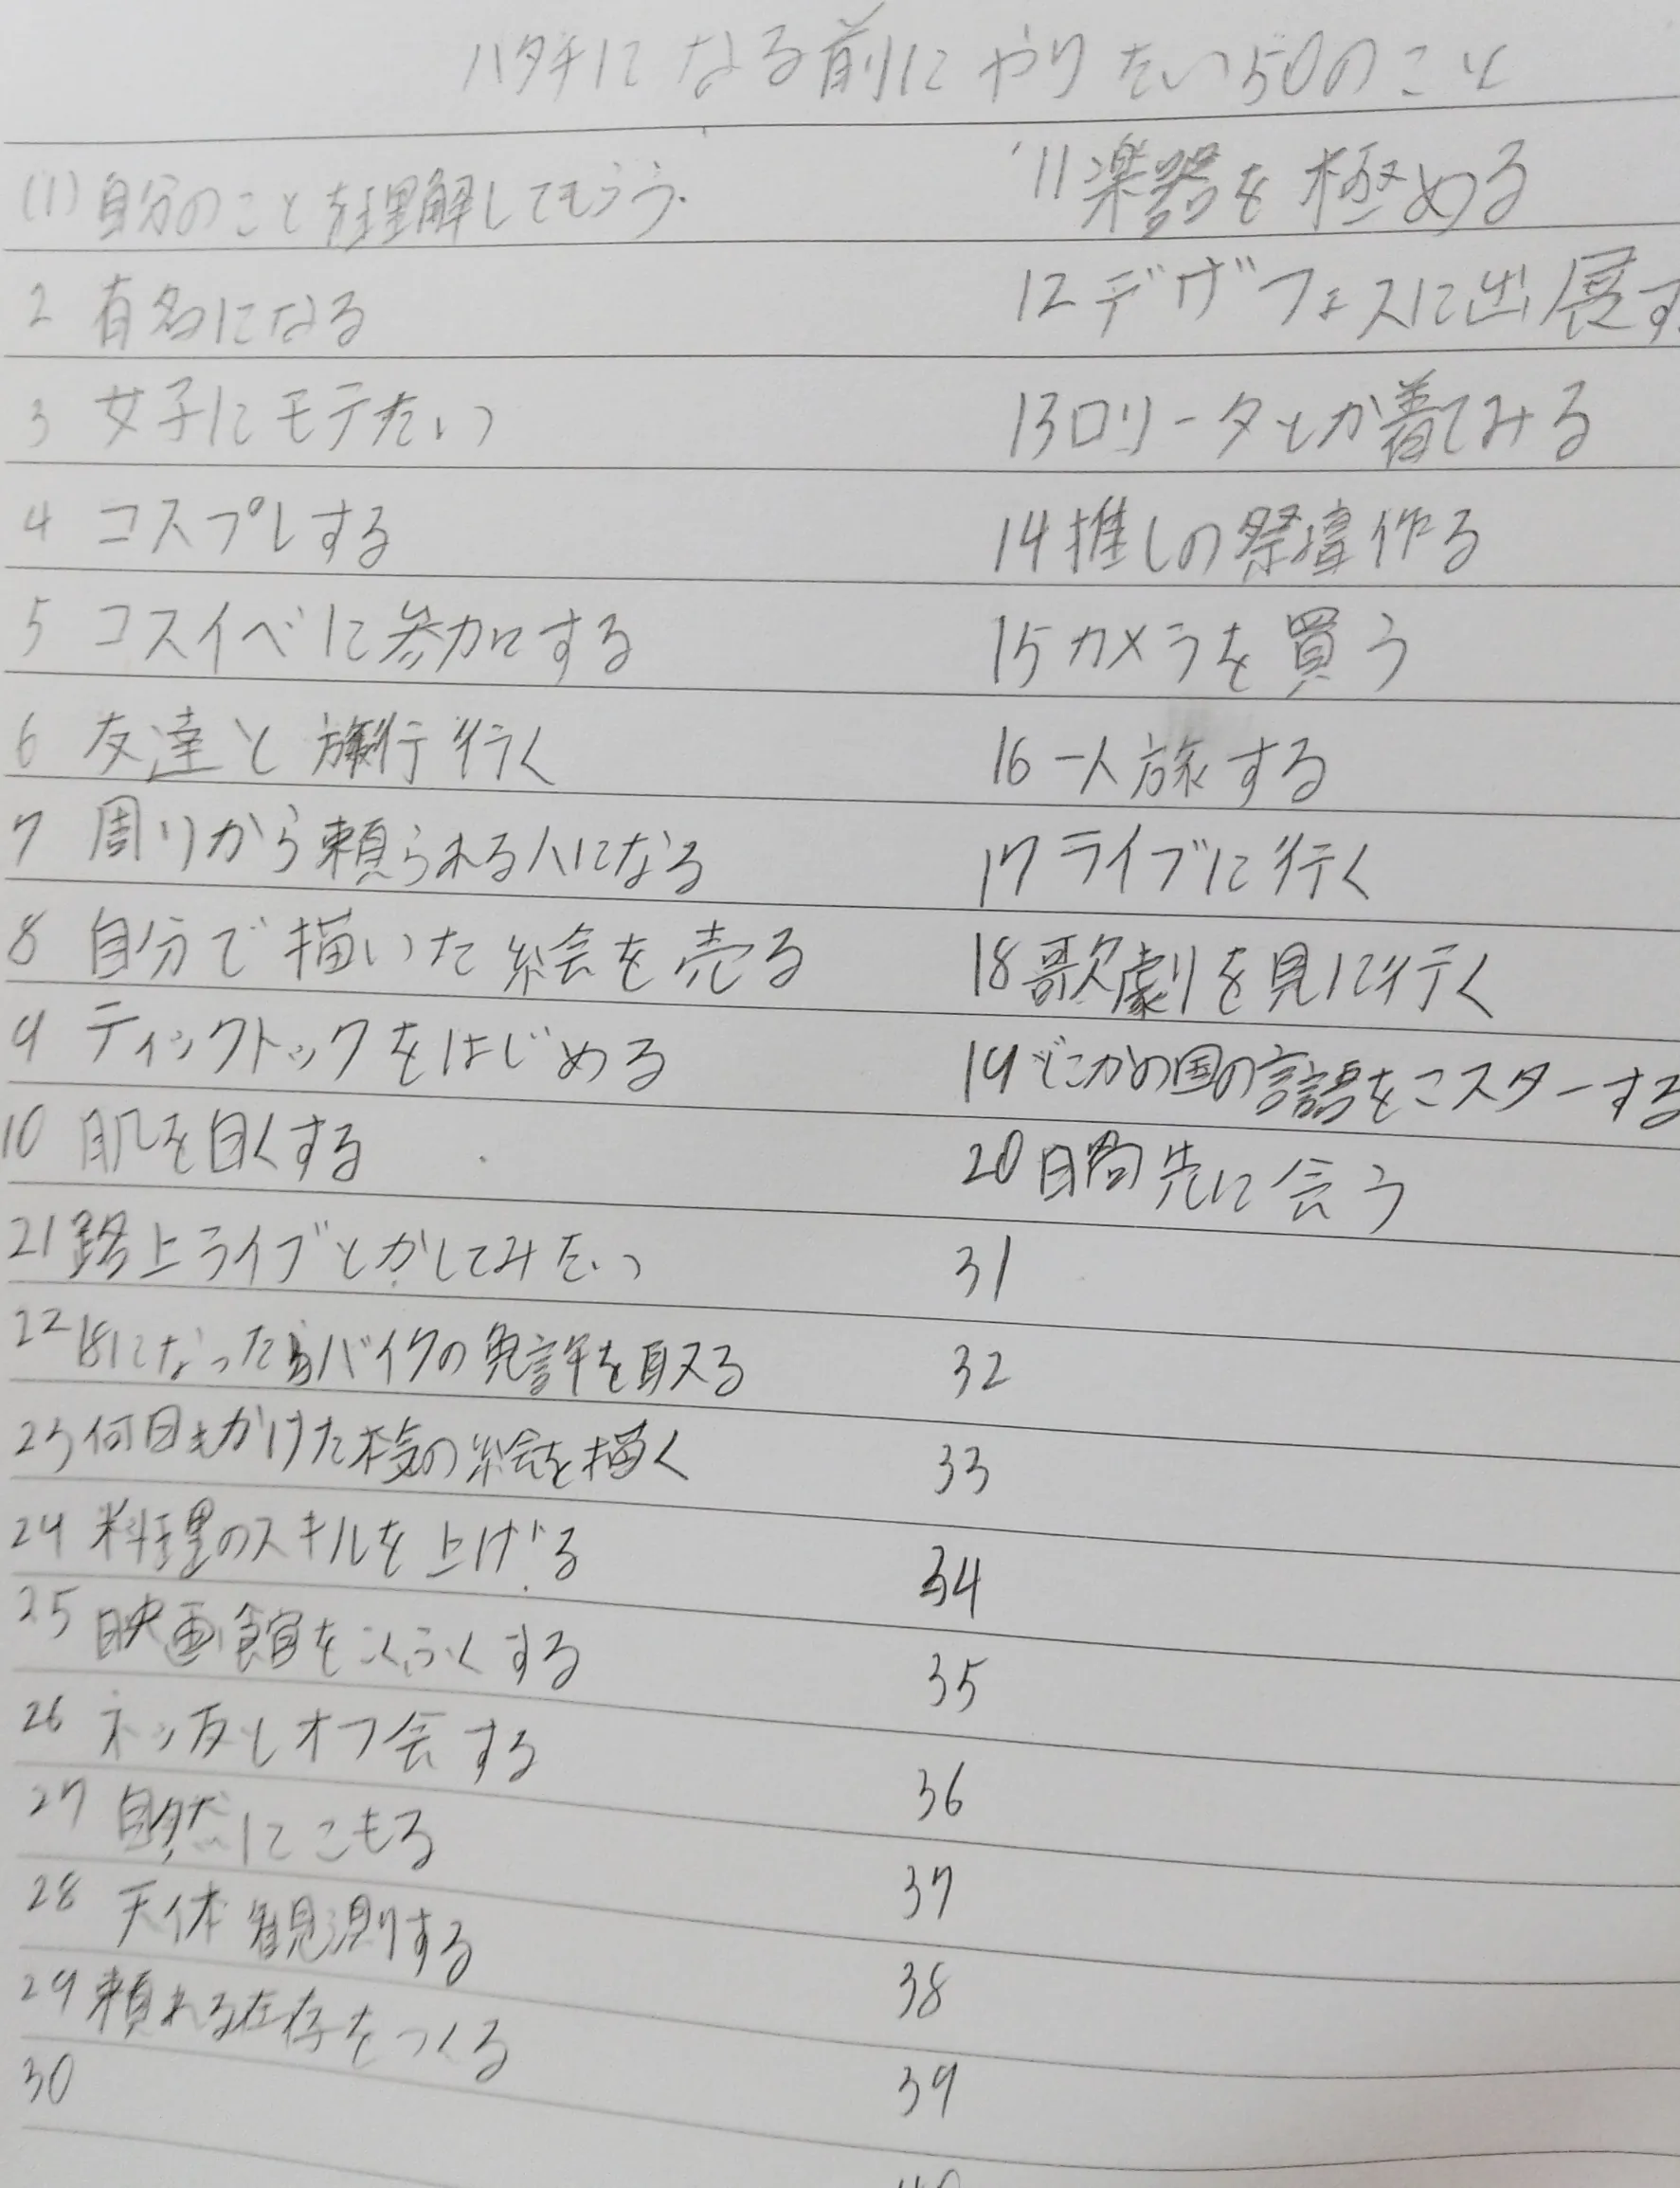 ハタチになる前にやりたい50のこと
(1) 自分のことを理解してもらう.
2 有名になる
3 女子にモテたい
4 コスプレする
5 コスイベに参加する
6 友達と旅行行く
7 周りから頼られる人になる
8 自分で描いた絵を売る
9 ティックトックをはじめる
10 肌を白くする
11 楽器を極める
12 デザフェスに出展す
13 ロリータとか着てみる
14 推しの祭壇作る
15 カメラを買う
16 一人旅する
17 ライブに行く
18 歌劇を見に行く
19 どこかの国の言語をマスターする
20 日向先に会う
21 路上ライブとかしてみたい
22 18になったらバイクの免許を取る
23 何日もかけた本気の絵を描く
24 料理のスキルを上げる
25 映画館をこくふくする
26 ネッ友とオフ会する
27 自然にこもる
28 天体観測する
29 頼れる存在をつくる
30
31
32
33
34
35
36
37
38
39